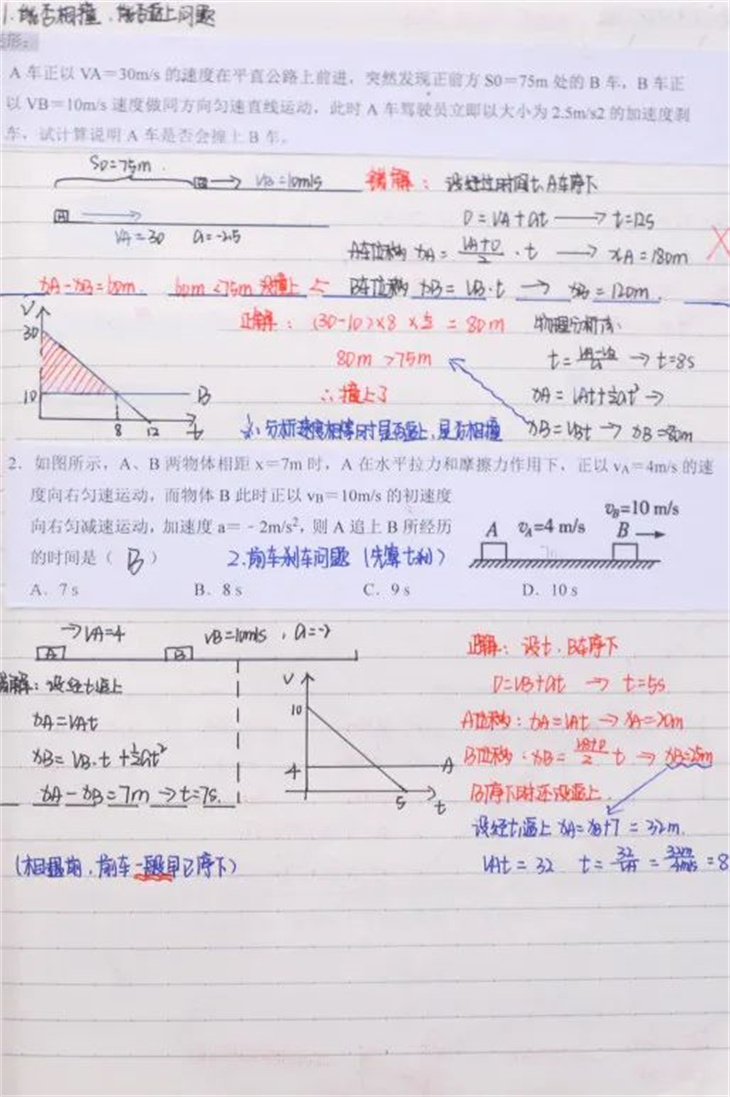 1.能否相撞、能否追上问题
A 车正以 VA=30m/s 的速度在平直公路上前进，突然发现正前方 S0=75m 处的 B 车，B 车正
以 VB=10m/s 速度做同方向匀速直线运动，此时 A 车驾驶员立即以大小为 2.5m/s2 的加速度刹
车，试计算说明 A 车是否会撞上 B 车。
S0=75m
B VB=10m/s
A VA=30 a=-2.5
错解：设经过时间t,A车停下
0=VA+at → t=12s
A车位移 xA=(VA+0)/2·t → xA=180m
B车位移 xB=VB·t → xB=120m
xA-xB=60m 60m<75m 没撞上
正解：(30-10)×8×½=80m
80m>75m
∴撞上了
物理分析法:
t= → t=8s
xA=VAt+½at² →
xB=VBt → xB=80m
※:分析速度相等时是否追上,是否相撞
V 30 10 8 12 t B
2．如图所示，A、B 两物体相距 x=7m 时，A 在水平拉力和摩擦力作用下，正以 vA=4m/s 的速
度向右匀速运动，而物体 B 此时正以 vB=10m/s 的初速度
向右匀减速运动，加速度 a=﹣2m/s²，则 A 追上 B 所经历
的时间是（ B ）
2.前车刹车问题 (先算t刹)
A vA=4 m/s B vB=10 m/s
7m
A．7 s B．8 s C．9 s D．10 s
→VA=4 VB=10m/s，a=-2
A B
错解：设经t追上
xA=VAt
xB=VB·t+½at²
xA-xB=7m → t=7s.
(相遇前，前车一般早已停下)
V 10 4 A 5 t
正解：设t，B车停下
0=VB+at → t=5s
A位移：xA=VAt → xA=20m
B位移：xB=(VB+0)/2 t → xB=25m
B停下时还没追上.
设经t追上 xA=xB+7=32m.
VAt=32 t=32/VA=32m/4m/s=8